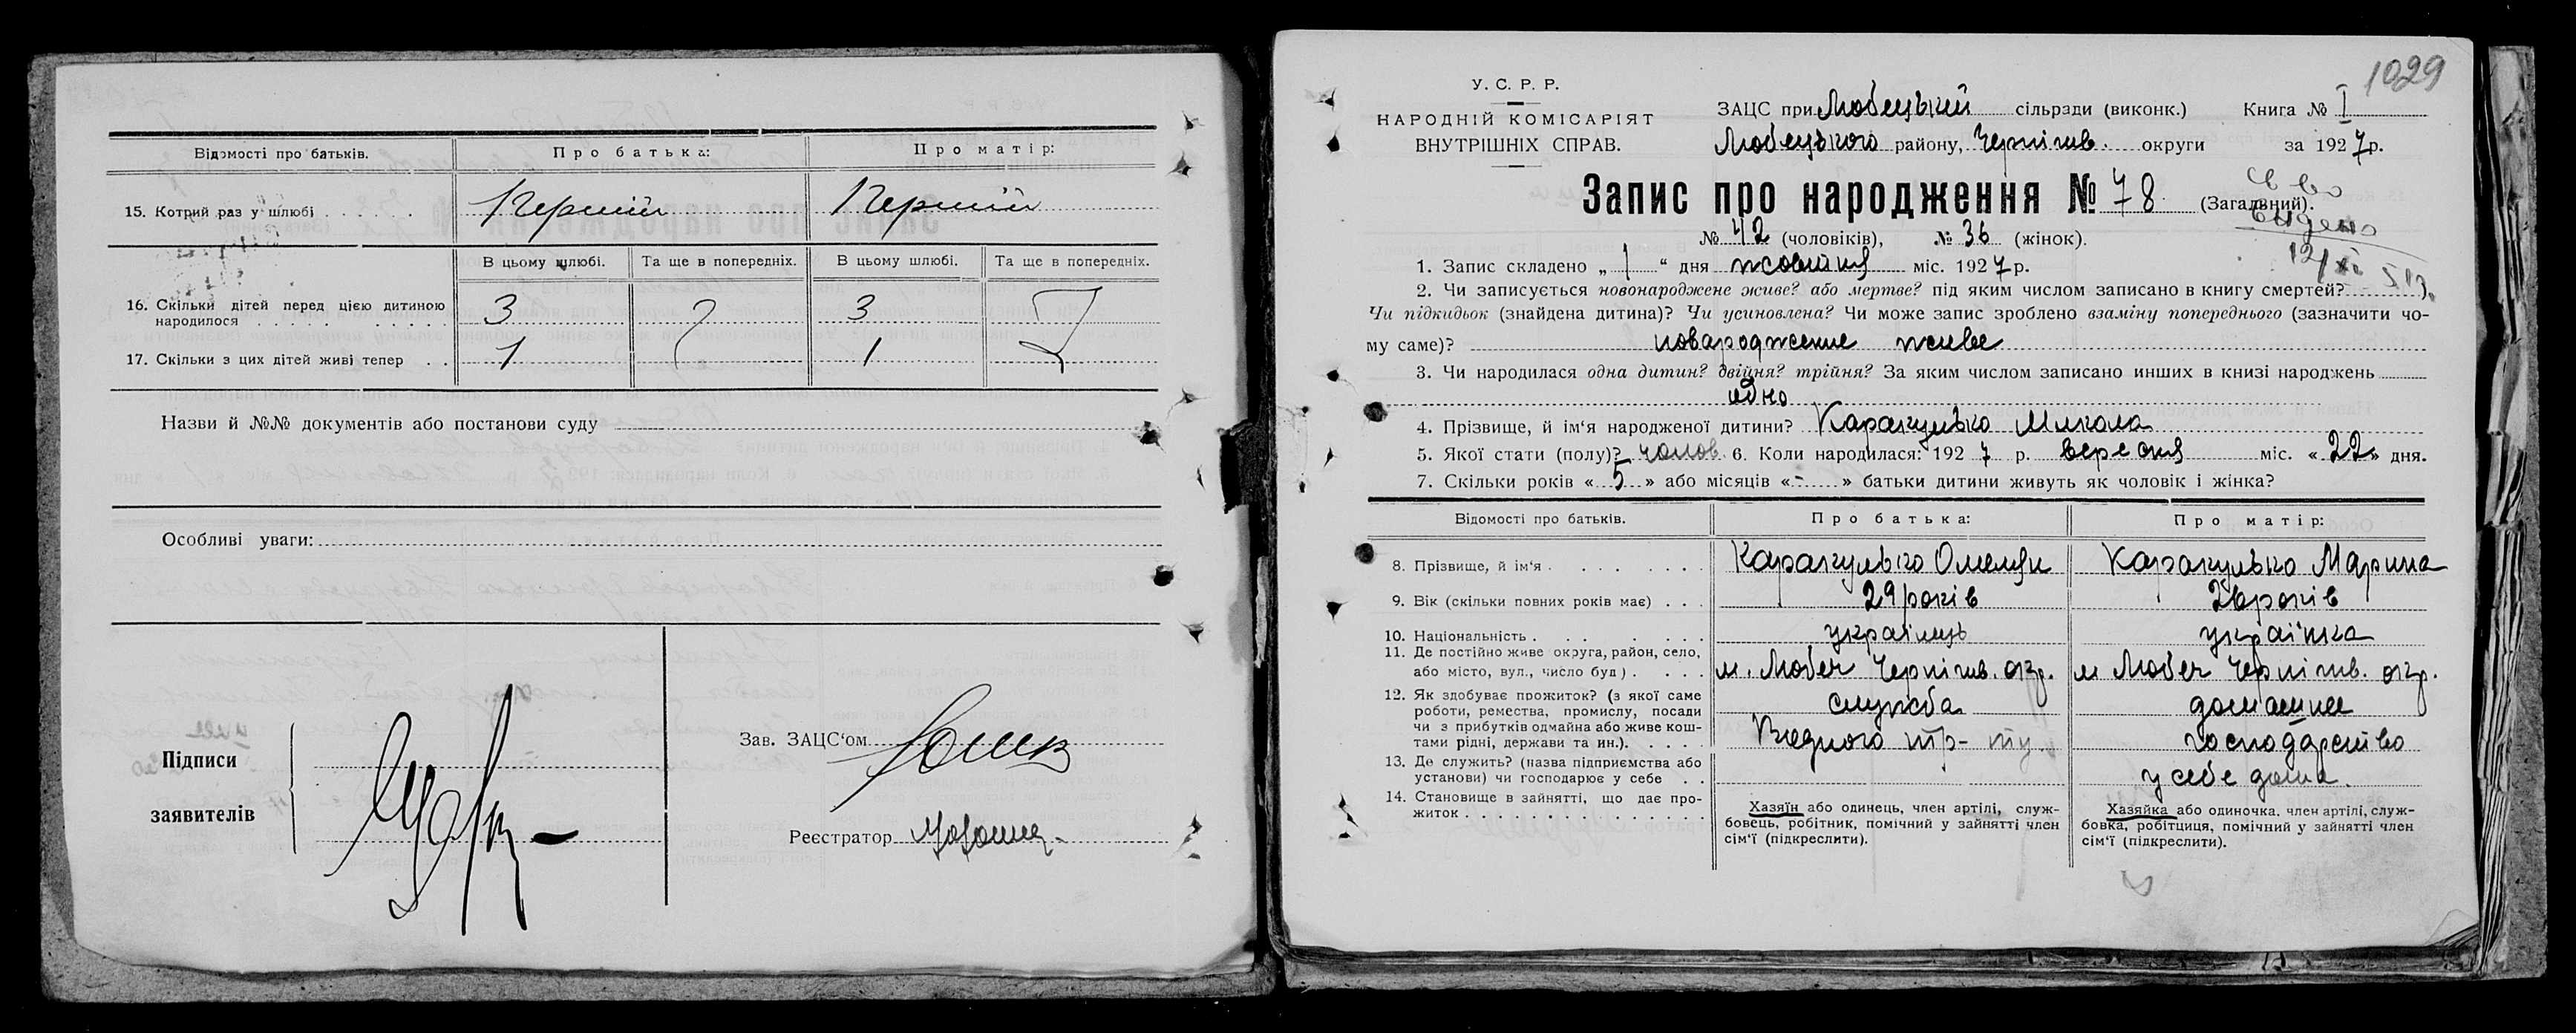 Відомості про батьків. Про батька: Про матір:
15. Котрий раз у шлюбі . . . . . . Перший Перший
В цьому шлюбі. Та ще в попередніх. В цьому шлюбі. Та ще в попередніх.
16. Скільки дітей перед цією дитиною 3 3
народилося . . . . . . . . . .
17. Скільки з цих дітей живі тепер . . 1 1
Назви й №№ документів або постанови суду
Особливі уваги:
Підписи
заявителів
Зав. ЗАЦС‘ом
Реєстратор
1029
У. С. Р. Р.
НАРОДНІЙ КОМІСАРІЯТ
ВНУТРІШНІХ СПРАВ.
ЗАЦС при Любецький сільради (виконк.) Книга № I
Любецького району, Чернігив. округи за 1927 р.
Запис про народження № 78 (Загальний).
Св-во
видано
№ 42 (чоловіків), № 36 (жінок).
1. Запис складено „ 1 “ дня жовтня міс. 1927 р.
2. Чи записується новонароджене живе? або мертве? під яким числом записано в книгу смертей?
Чи підкидьок (знайдена дитина)? Чи усиновлена? Чи може запис зроблено взаміну попереднього (зазначити чо-
му саме)? новароджение живе
3. Чи народилася одна дитин? двійня? трійня? За яким числом записано инших в книзі народжень
одно
4. Прізвище, й ім‘я народженої дитини? Каракулько Микола
5. Якої стати (полу)? чолов. 6. Коли народилася: 1927 р. вересня міс. « 22 » дня.
7. Скільки років « 5 » або місяців « - » батьки дитини живуть як чоловік і жінка?
Відомості про батьків. Про батька: Про матір:
8. Прізвище, й ім‘я . . . . . . . Каракулько Омелян Каракулько Марина
9. Вік (скільки повних років має) . . . 29 років років
10. Національність . . . . . . . українць українка
11. Де постійно живе округа, район, село,
або місто, вул., число буд) . . . . . м. Любеч Чернігив. окр. м Любеч Чернігив. окр.
12. Як здобуває прожиток? (з якої саме служба домашнее
роботи, ремества, промислу, посади
чи з прибутків одмайна або живе кош-
тами рідні, держави та ин.). . . . . господарство
13. Де служить? (назва підприємства або
установи) чи господарює у себе . . у себе дома.
14. Становище в зайнятті, що дає про-
житок . . . . . . . . . . . . . .
Хазяїн або одинець, член артілі, служ-
бовець, робітник, помічний у зайнятті член
сім‘ї (підкреслити).
Хазяйка або одиночка, член артілі, служ-
бовка, робітциця, помічний у зайнятті член
сім‘ї (підкреслити).